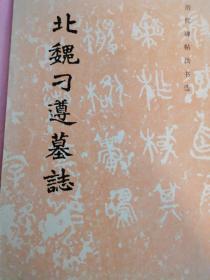 历代碑帖法书选
北魏刁遵墓誌